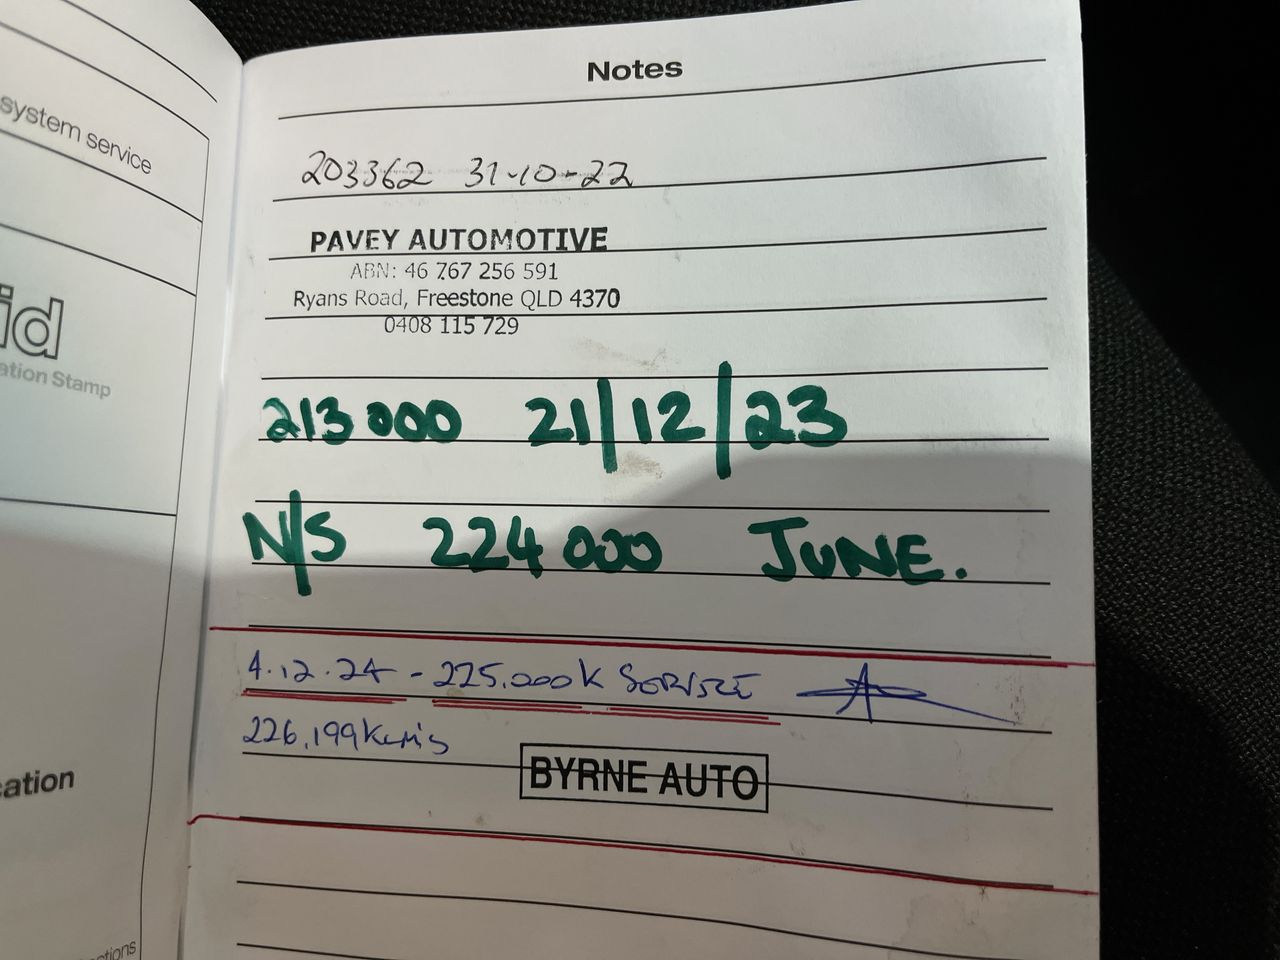 system service
id
ation Stamp
cation
ctions
Notes
203362 31-10-22
PAVEY AUTOMOTIVE
ABN: 46 767 256 591
Ryans Road, Freestone QLD 4370
0408 115 729
213000 21/12/23
N/S 224000 JUNE.
4.12.24 - 225,000K SERVICE
226,199Kcm's
BYRNE AUTO